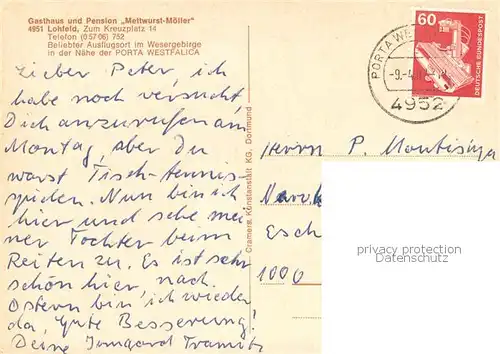 Gasthaus und Pension „Mettwurst-Möller"
4951 Lohfeld, Zum Kreuzplatz 14
Telefon (0 57 06) 752
Beliebter Ausflugsort im Wesergebirge
in der Nähe der PORTA WESTFALICA
Lieber Peter, ich
habe noch versucht,
Dich anzurufen am
Montag, aber Du
warst Tisch-tennis-
spielen. Nun bin ich
hier und sehe mei
ner Tochter beim
Reiten zu. Es ist sehr
schön hier, nach
Ostern bin ich wieder
da, Gute Besserung!
Deine Irmgard
Cramers Kunstanstalt KG, Dortmund
60
DEUTSCHE BUNDESPOST
PORTA WE
-9.-4.
4952
Herrn P.
Esch
1000
privacy protection
Datenschutz